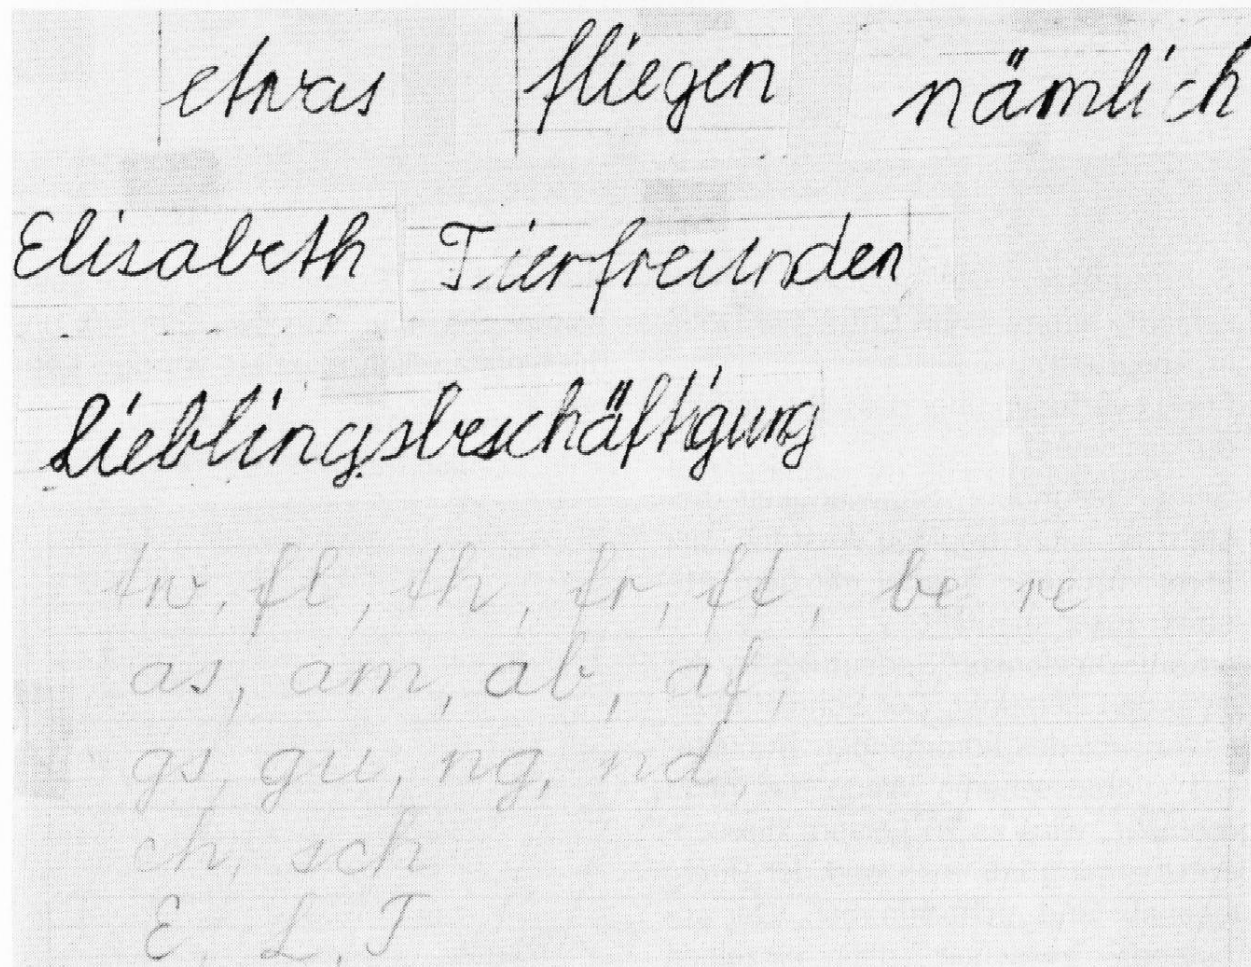 etwas fliegen nämlich
Elisabeth Tierfreunden
Lieblingsbeschäftigung
tw, fl, th, fr, ft, be re
as, am, ab, af,
gs, gu, ng, nd,
ch, sch
E, L, T